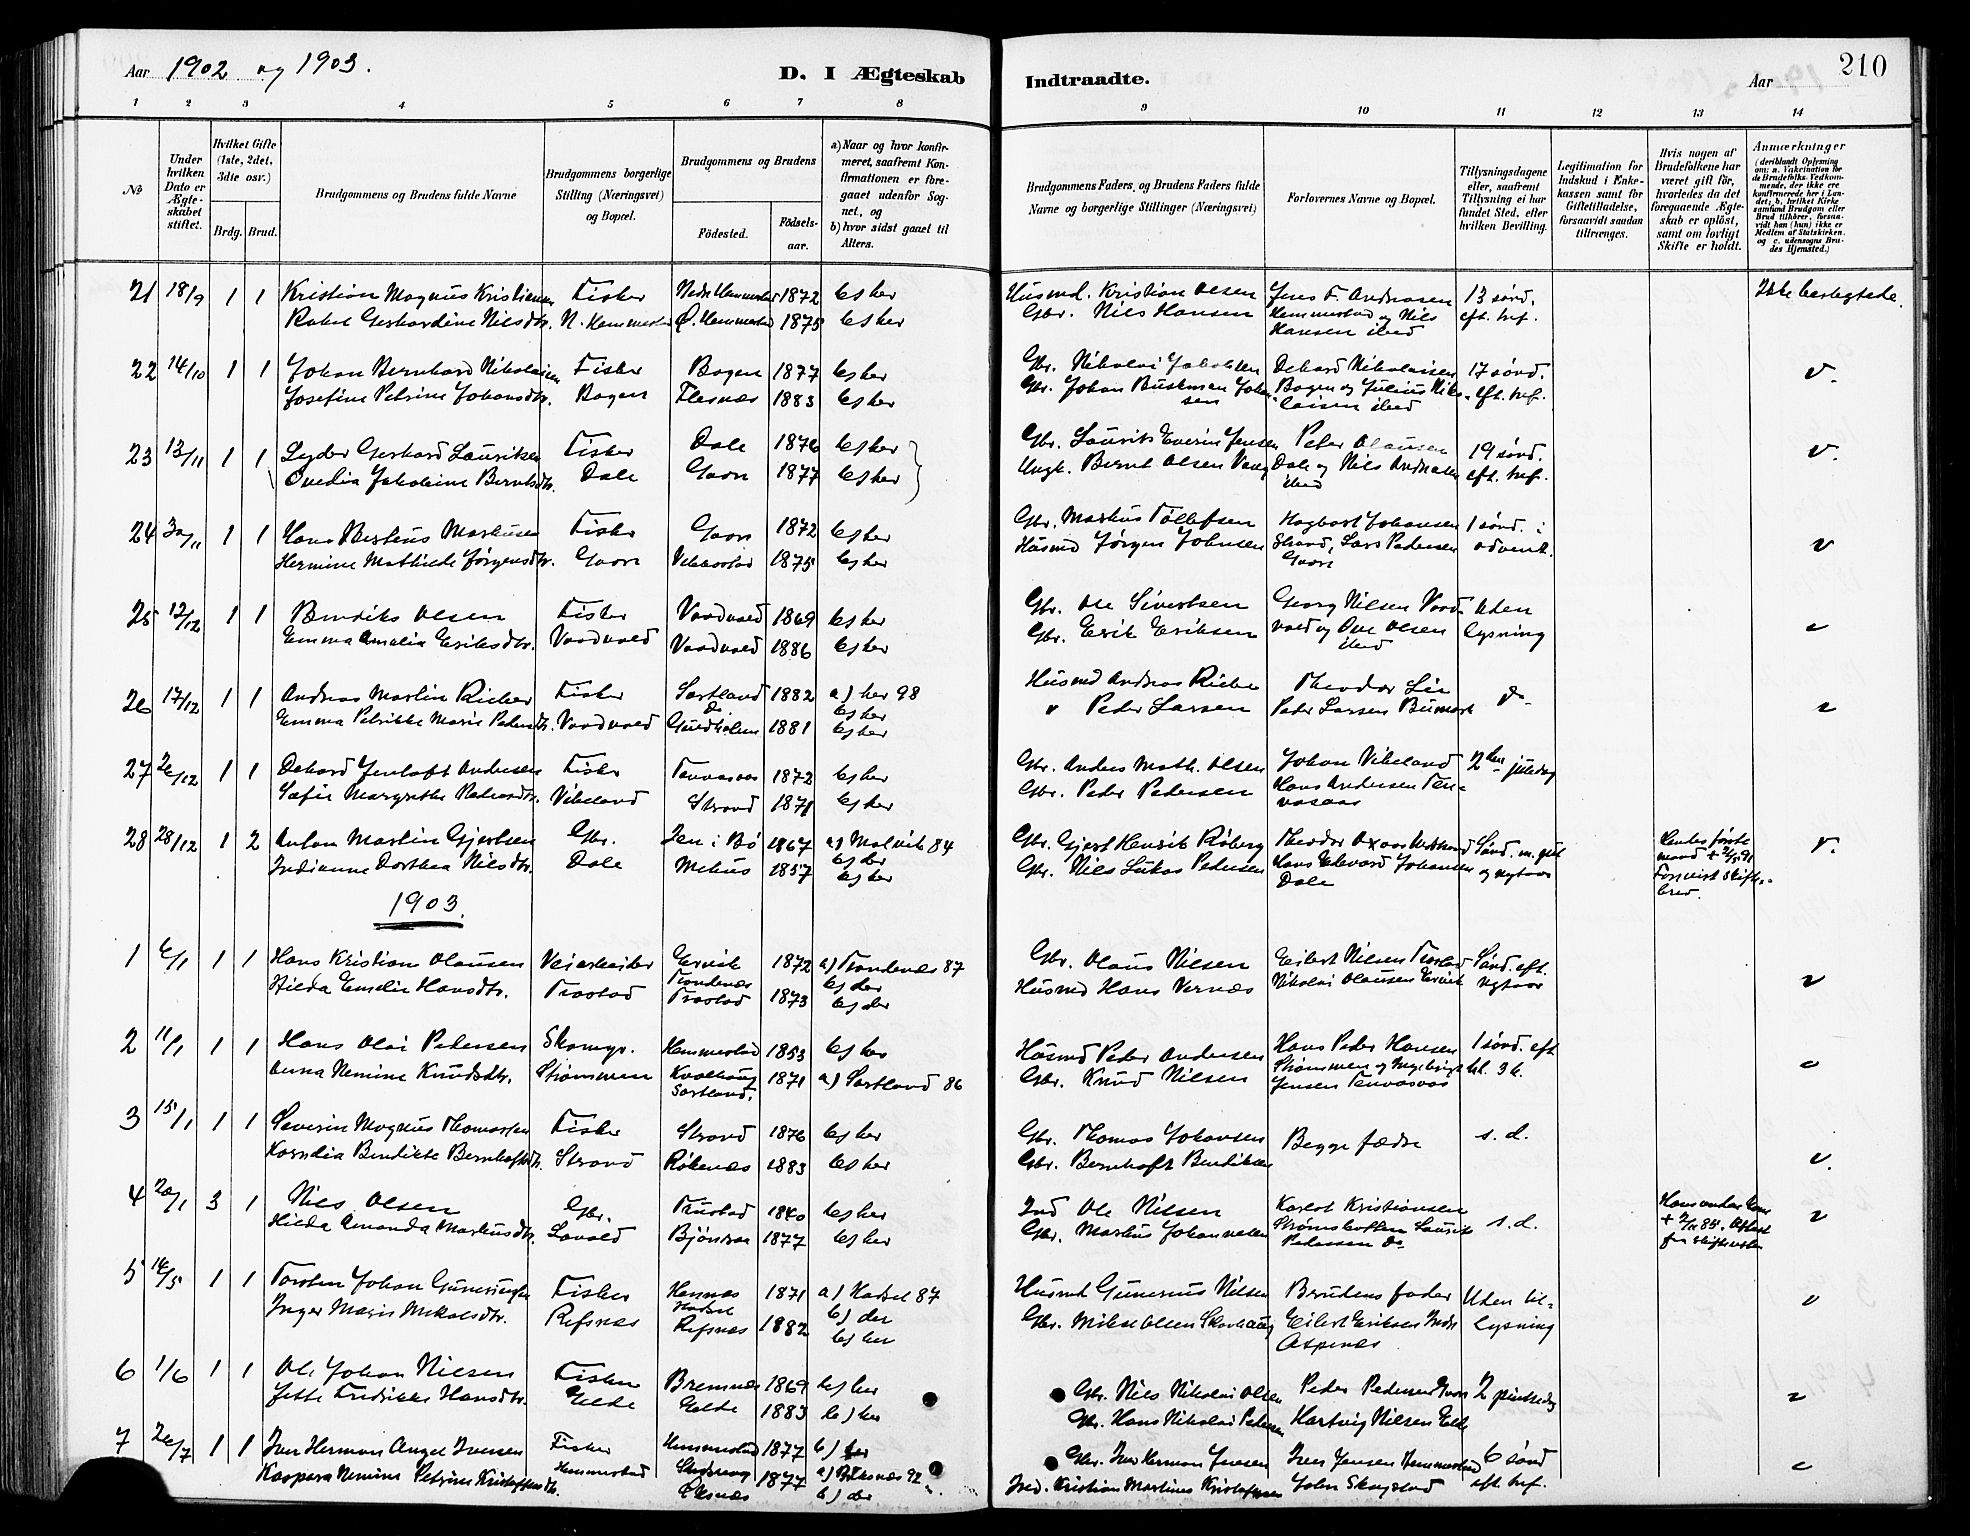 Aar 1902 og 1903.
D. I Ægteskab Indtraadte.
Aar
210
1 2 3 4 5 6 7 8 9 10 11 12 13 14
No
Under hvilken Dato er Ægteskabet stiftet.
Hvilket Gifte (1ste, 2det, 3dte osv.)
Brdg. Brud.
Brudgommens og Brudens fulde Navne
Brudgommens borgerlige Stilling (Næringsvei) og Bopæl.
Brudgommens og Brudens
Fødested.
Fødselsaar.
a) Naar og hvor konfirmeret, saafremt Konfirmationen er foregaaet udenfor Sognet, og
b) hvor sidst gaaet til Alters.
Brudgommens Faders, og Brudens Faders fulde Navne og borgerlige Stillinger (Næringsvei)
Forlovernes Navne og Bopæl.
Tillysningsdagene eller, saafremt Tillysning ei har fundet Sted, efter hvilken Bevilling.
Legitimation for Indskud i Enkekassen samt for Giftetilladelse, forsaavidt saadan tiltrænges.
Hvis nogen af Brudefolkene har været gift før, hvorledes da det foregaaende Ægteskab er opløst, samt om lovligt Skifte er holdt.
Anmærkninger
(deriblandt Oplysning om: a. Vakcination for de Brudefolks Vedkommende, der ikke ere konfirmerede her i Landet; b. hvilket Kirkesamfund Brudgom eller Brud tilhører, forsaavidt han (hun) ikke er Medlem af Statskirken. og c. udensogns Brudes Hjemsted.)
21 18/9 1 1 Kristian Magnus Kristiansen Fisker Nedre Hemmestad 1872 b) her Husmd. Kristian Olsen Jens F. Andreasen 13 sønd. Ikke beslegtede.
Rakel Gerhardine Nilsdtr. N. Hemmestad Ø. Hemmestad 1875 b) her Gbr. Nils Hansen Hemmestad og Nils eft. tref.
Hansen ibed
22 14/10 1 1 Johan Bernhard Nikolaisen Fisker Bogen 1877 b) her Gbr. Nikolai Jakobsen Dehard Nikolaisen 17 sønd.
Josefine Petrine Johansdtr. Bogen Flesnæs 1883 b) her Gbr. Johan Buschman Johansen Bogen og Julius Nikolaisen ibed eft. tref.
23 13/11 1 1 Lyder Gerhard Lauritsen Fisker Dale 1876 b) her Gbr. Laurits Everin Jensen Peder Olausen 19 sønd.
Ovedia Jakobine Berntsdtr. Dale Gaon 1877 b) her Ungk. Bernt Olsen Vang Dale og Nils Andreasen ibed eft. tref.
24 30/11 1 1 Hans Berteus Markusen Fisker Gaon 1872 b) her Gbr. Markus Tollefsen Hagbart Johansen 1 sønd. i
Hermine Mathilde Jørgensdtr. Gaon 1875 b) her Husmd Jørgen Johnsen Strand, Lars Pedersen Gaon advent.
25 12/12 1 1 Bendiks Olsen Fisker Vaadvold 1869 b) her Gbr. Ole Sivertsen Georg Nilsen Vaadvold og Ove Olsen ibed Uden lysning
Emma Amalia Eriksdtr. Vaadvold Vaadvold 1886 b) her Gbr. Erik Eriksen
26 17/12 1 1 Andreas Martin Rieber Fisker Sortland 1882 a) her 98 b) her Husmd Andreas Rieber Theodor Lie
Emma Petrikke Marie Pedersdtr. Vaadvold Guldholmen 1881 b) her " Peder Larsen Peder Larsen
27 26/12 1 1 Dehard Jentoft Andersen Fisker 1872 b) her Gbr. Anders Math. Olsen Johan Vikeland 2den juledag
Sofie Margrethe Pedersdtr. Vikeland Strand 1871 b) her Gbr. Peder Pedersen Hans Andersen
28 28/12 1 2 Anton Martin Gjertsen Gbr. Jen i Bø 1867 a) Malvik 84 b) der Gbr. Gjert Henrik Røberg Theodor Sønd. m. jul
Indianne Dorthea Nilsdtr. Dale Melnes 1857 b) her Gbr. Nils Lukas Pedersen Hans Edevard Johansen Dale og nytaar
1903.
1 6/1 1 1 Hans Kristian Olausen Veiarbeider Ervik Trondenæs 1872 a) Trondenæs 87 b) der Gbr. Olaus Nilsen Eilert Nilsen Trastad Sønd. eft.
Hilda Emelie Hansdtr. Trastad Trastad 1873 b) der Husmd Hans Vernæs Nikolai Olausen Ervik nytaar
2 11/1 1 1 Hans Olai Pedersen Skomgr. Hemmestad 1853 b) her Husmd Peder Andersen Hans Peder Hansen 1 sønd. eft
Anna Nemine Knudsdtr. Strømmen Kvalhaug Sortland. 1871 a) Sortland 86 Gbr. Knud Nilsen Strømmen og Ingebrigt Jensen hl. 3 k.
3 15/1 1 1 Severin Magnus Thomassen Fisker Strand 1876 b) her Gbr. Thomas Johansen Begge fædre s. d.
Kornelia Bendikte Bernhoftsdtr. Strand Røkenæs 1883 b) her Gbr. Bernhoft Bendiksen
4 20/1 3 1 Nils Olsen Gbr. 1840 b) her Ind Ole Nilsen Karlot Kristiansen s. d.
Hilda Amanda Markusdtr. Lovold Bjørnraa 1877 b) her Gbr. Markus Johannesen Strømsbotten Laurits Pedersen do
5 14/5 1 1 Torsten Johan Gunerius Fisker Hennæs Hadsel 1871 a) Hadsel 87 b) der Husmd Gunerius Nilsen Brudens fader Uden til-
Inger Marie Mikalsdtr. Refsnæs Refsnæs 1882 b) her Gbr. Mikal Olsen Skovhaug Eilert Eriksen Indre Aspenæs lysning
6 1/6 1 1 Ole Johan Nilsen Fisker Bremnæs 1869 b) her Gbr. Nils Nikolai Olsen Peder Pedersen Gaon 2 pinsedag
Jette Fredrikke Hansdtr. Gelde Gelde 1883 b) her Gbr. Hans Nikolai Pedersen Hartvig Nilsen
7 26/7 1 1 Iver Herman Angel Iversen Fisker Hemmestad 1877 b) her Gbr. Iver Herman Jensen Iver Jensen Hemmestad 6 sønd
Kaspara Nemine Petrine Kristoffersdtr. Hemmestad 1877 a) Buksnæs 92 b) der Ind. Kristian Martinus Kristofersen John Skogstad eft. tref.